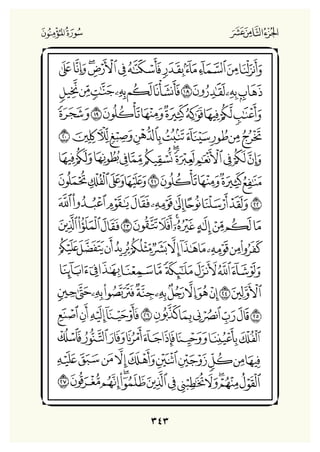 الجزء الثامن عشر سورة المؤمنون
وَأَنزَلْنَا مِنَ ٱلسَّمَآءِ مَآءًۢ بِقَدَرٍ فَأَسْكَنَّـٰهُ فِى ٱلْأَرْضِ ۖ وَإِنَّا عَلَىٰ
ذَهَابٍۭ بِهِۦ لَقَـٰدِرُونَ ١٨ فَأَنشَأْنَا لَكُم بِهِۦ جَنَّـٰتٍ مِّن نَّخِيلٍ
وَأَعْنَـٰبٍ لَّكُمْ فِيهَا فَوَٰكِهُ كَثِيرَةٌ وَمِنْهَا تَأْكُلُونَ ١٩ وَشَجَرَةً
تَخْرُجُ مِن طُورِ سَيْنَآءَ تَنۢبُتُ بِٱلدُّهْنِ وَصِبْغٍ لِّلْـَٔاكِلِينَ ٢٠
وَإِنَّ لَكُمْ فِى ٱلْأَنْعَـٰمِ لَعِبْرَةً ۖ نُّسْقِيكُم مِّمَّا فِى بُطُونِهَا وَلَكُمْ فِيهَا
مَنَـٰفِعُ كَثِيرَةٌ وَمِنْهَا تَأْكُلُونَ ٢١ وَعَلَيْهَا وَعَلَى ٱلْفُلْكِ تُحْمَلُونَ
٢٢ وَلَقَدْ أَرْسَلْنَا نُوحًا إِلَىٰ قَوْمِهِۦ فَقَالَ يَـٰقَوْمِ ٱعْبُدُوا۟ ٱللَّهَ
مَا لَكُم مِّنْ إِلَـٰهٍ غَيْرُهُۥٓ ۖ أَفَلَا تَتَّقُونَ ٢٣ فَقَالَ ٱلْمَلَؤُا۟ ٱلَّذِينَ
كَفَرُوا۟ مِن قَوْمِهِۦ مَا هَـٰذَآ إِلَّا بَشَرٌ مِّثْلُكُمْ يُرِيدُ أَن يَتَفَضَّلَ عَلَيْكُمْ
وَلَوْ شَآءَ ٱللَّهُ لَأَنزَلَ مَلَـٰٓئِكَةً مَّا سَمِعْنَا بِهَـٰذَا فِىٓ ءَابَآئِنَا
ٱلْأَوَّلِينَ ٢٤ إِنْ هُوَ إِلَّا رَجُلٌۢ بِهِۦ جِنَّةٌ فَتَرَبَّصُوا۟ بِهِۦ حَتَّىٰ حِينٍ
٢٥ قَالَ رَبِّ ٱنصُرْنِى بِمَا كَذَّبُونِ ٢٦ فَأَوْحَيْنَآ إِلَيْهِ أَنِ ٱصْنَعِ
ٱلْفُلْكَ بِأَعْيُنِنَا وَوَحْيِنَا فَإِذَا جَآءَ أَمْرُنَا وَفَارَ ٱلتَّنُّورُ ۙ فَٱسْلُكْ
فِيهَا مِن كُلٍّ زَوْجَيْنِ ٱثْنَيْنِ وَأَهْلَكَ إِلَّا مَن سَبَقَ عَلَيْهِ
ٱلْقَوْلُ مِنْهُمْ ۖ وَلَا تُخَـٰطِبْنِى فِى ٱلَّذِينَ ظَلَمُوٓا۟ ۖ إِنَّهُم مُّغْرَقُونَ ٢٧
٣٤٣